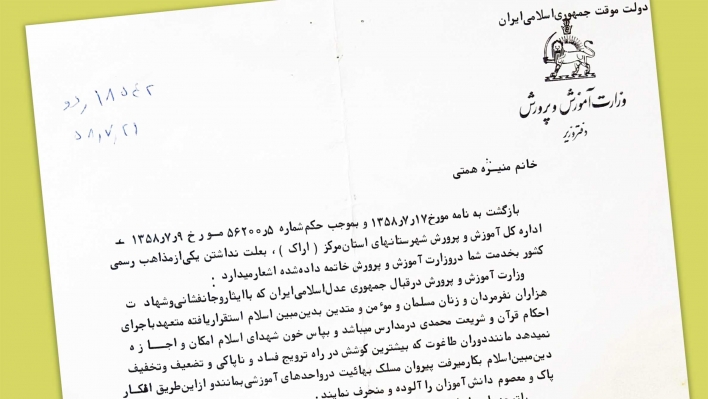 دولت موقت جمهوری اسلامی ایران
وزارت آموزش و پرورش
دفتر وزیر
۵۸,۷,۲۱
خانم منیژه همتی
بازگشت به نامه مورخ ۱۳۵۸ر۷ر۱۷ و بموجب حکم شماره ۵ر۵۶۲۰۰ مورخ ۱۳۵۸ر۷ر۹
اداره کل آموزش و پرورش شهرستانهای استان مرکز ( اراک ) ، بعلت نداشتن یکی از مذاهب رسمی
کشور بخدمت شما در وزارت آموزش و پرورش خاتمه داده شده اشعار میدارد :
وزارت آموزش و پرورش در قبال جمهوری عدل اسلامی ایران که با ایثار و جانفشانی و شهادت
هزاران نفر مردان و زنان مسلمان و موءمن و متدین بدین مبین اسلام استقرار یافته متعهد باجرای
احکام قرآن و شریعت محمدی در مدارس میباشد و بپاس خون شهدای اسلام امکان و اجازه
نمیدهد مانند دوران طاغوت که بیشترین کوشش در راه ترویج فساد و ناپاکی و تضعیف و تخفیف
دین مبین اسلام بکار میرفت پیروان مسلک بهائیت در واحدهای آموزشی بمانند و از این طریق افکار
پاک و معصوم دانش آموزان را آلوده و منحرف نمایند .